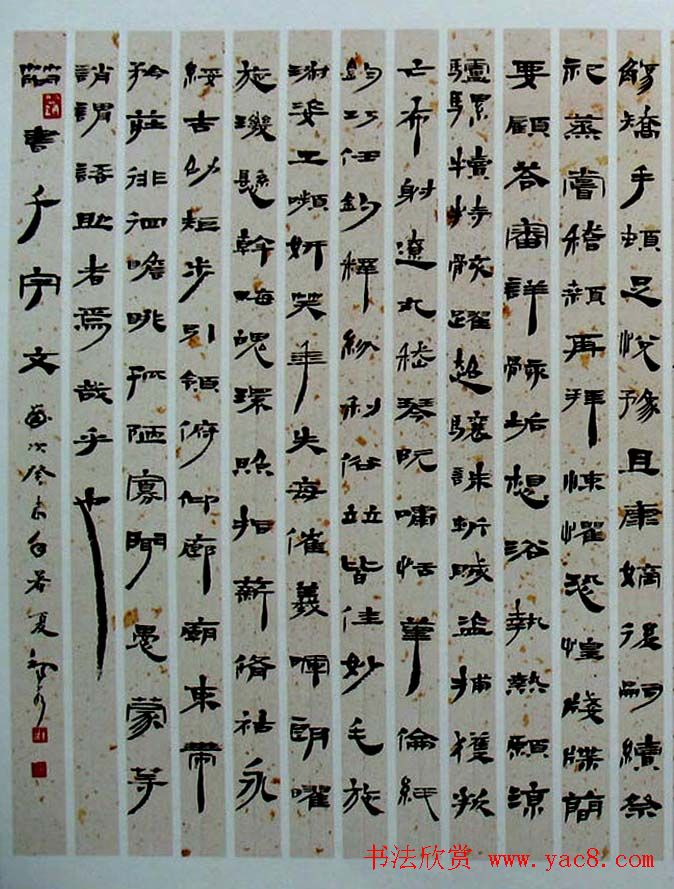 觴矯手頓足悅豫且康嫡後嗣續祭
祀蒸嘗稽顙再拜悚懼恐惶牋牒簡
要顧答審詳骸垢想浴執熱願涼
驢騾犢特駭躍超驤誅斬賊盜捕獲叛
亡布射遼丸嵇琴阮嘯恬筆倫紙
鈞巧任釣釋紛利俗竝皆佳妙毛施
淑姿工嚬妍笑年矢每催羲暉朗曜
旋璣懸斡晦魄環照指薪脩祜永
綏吉劭矩步引領俯仰廊廟束帶
矜莊徘徊瞻眺孤陋寡聞愚蒙等
誚謂語助者焉哉乎也
簡書千字文
歲次癸未夏
书法欣赏 www.yac8.com